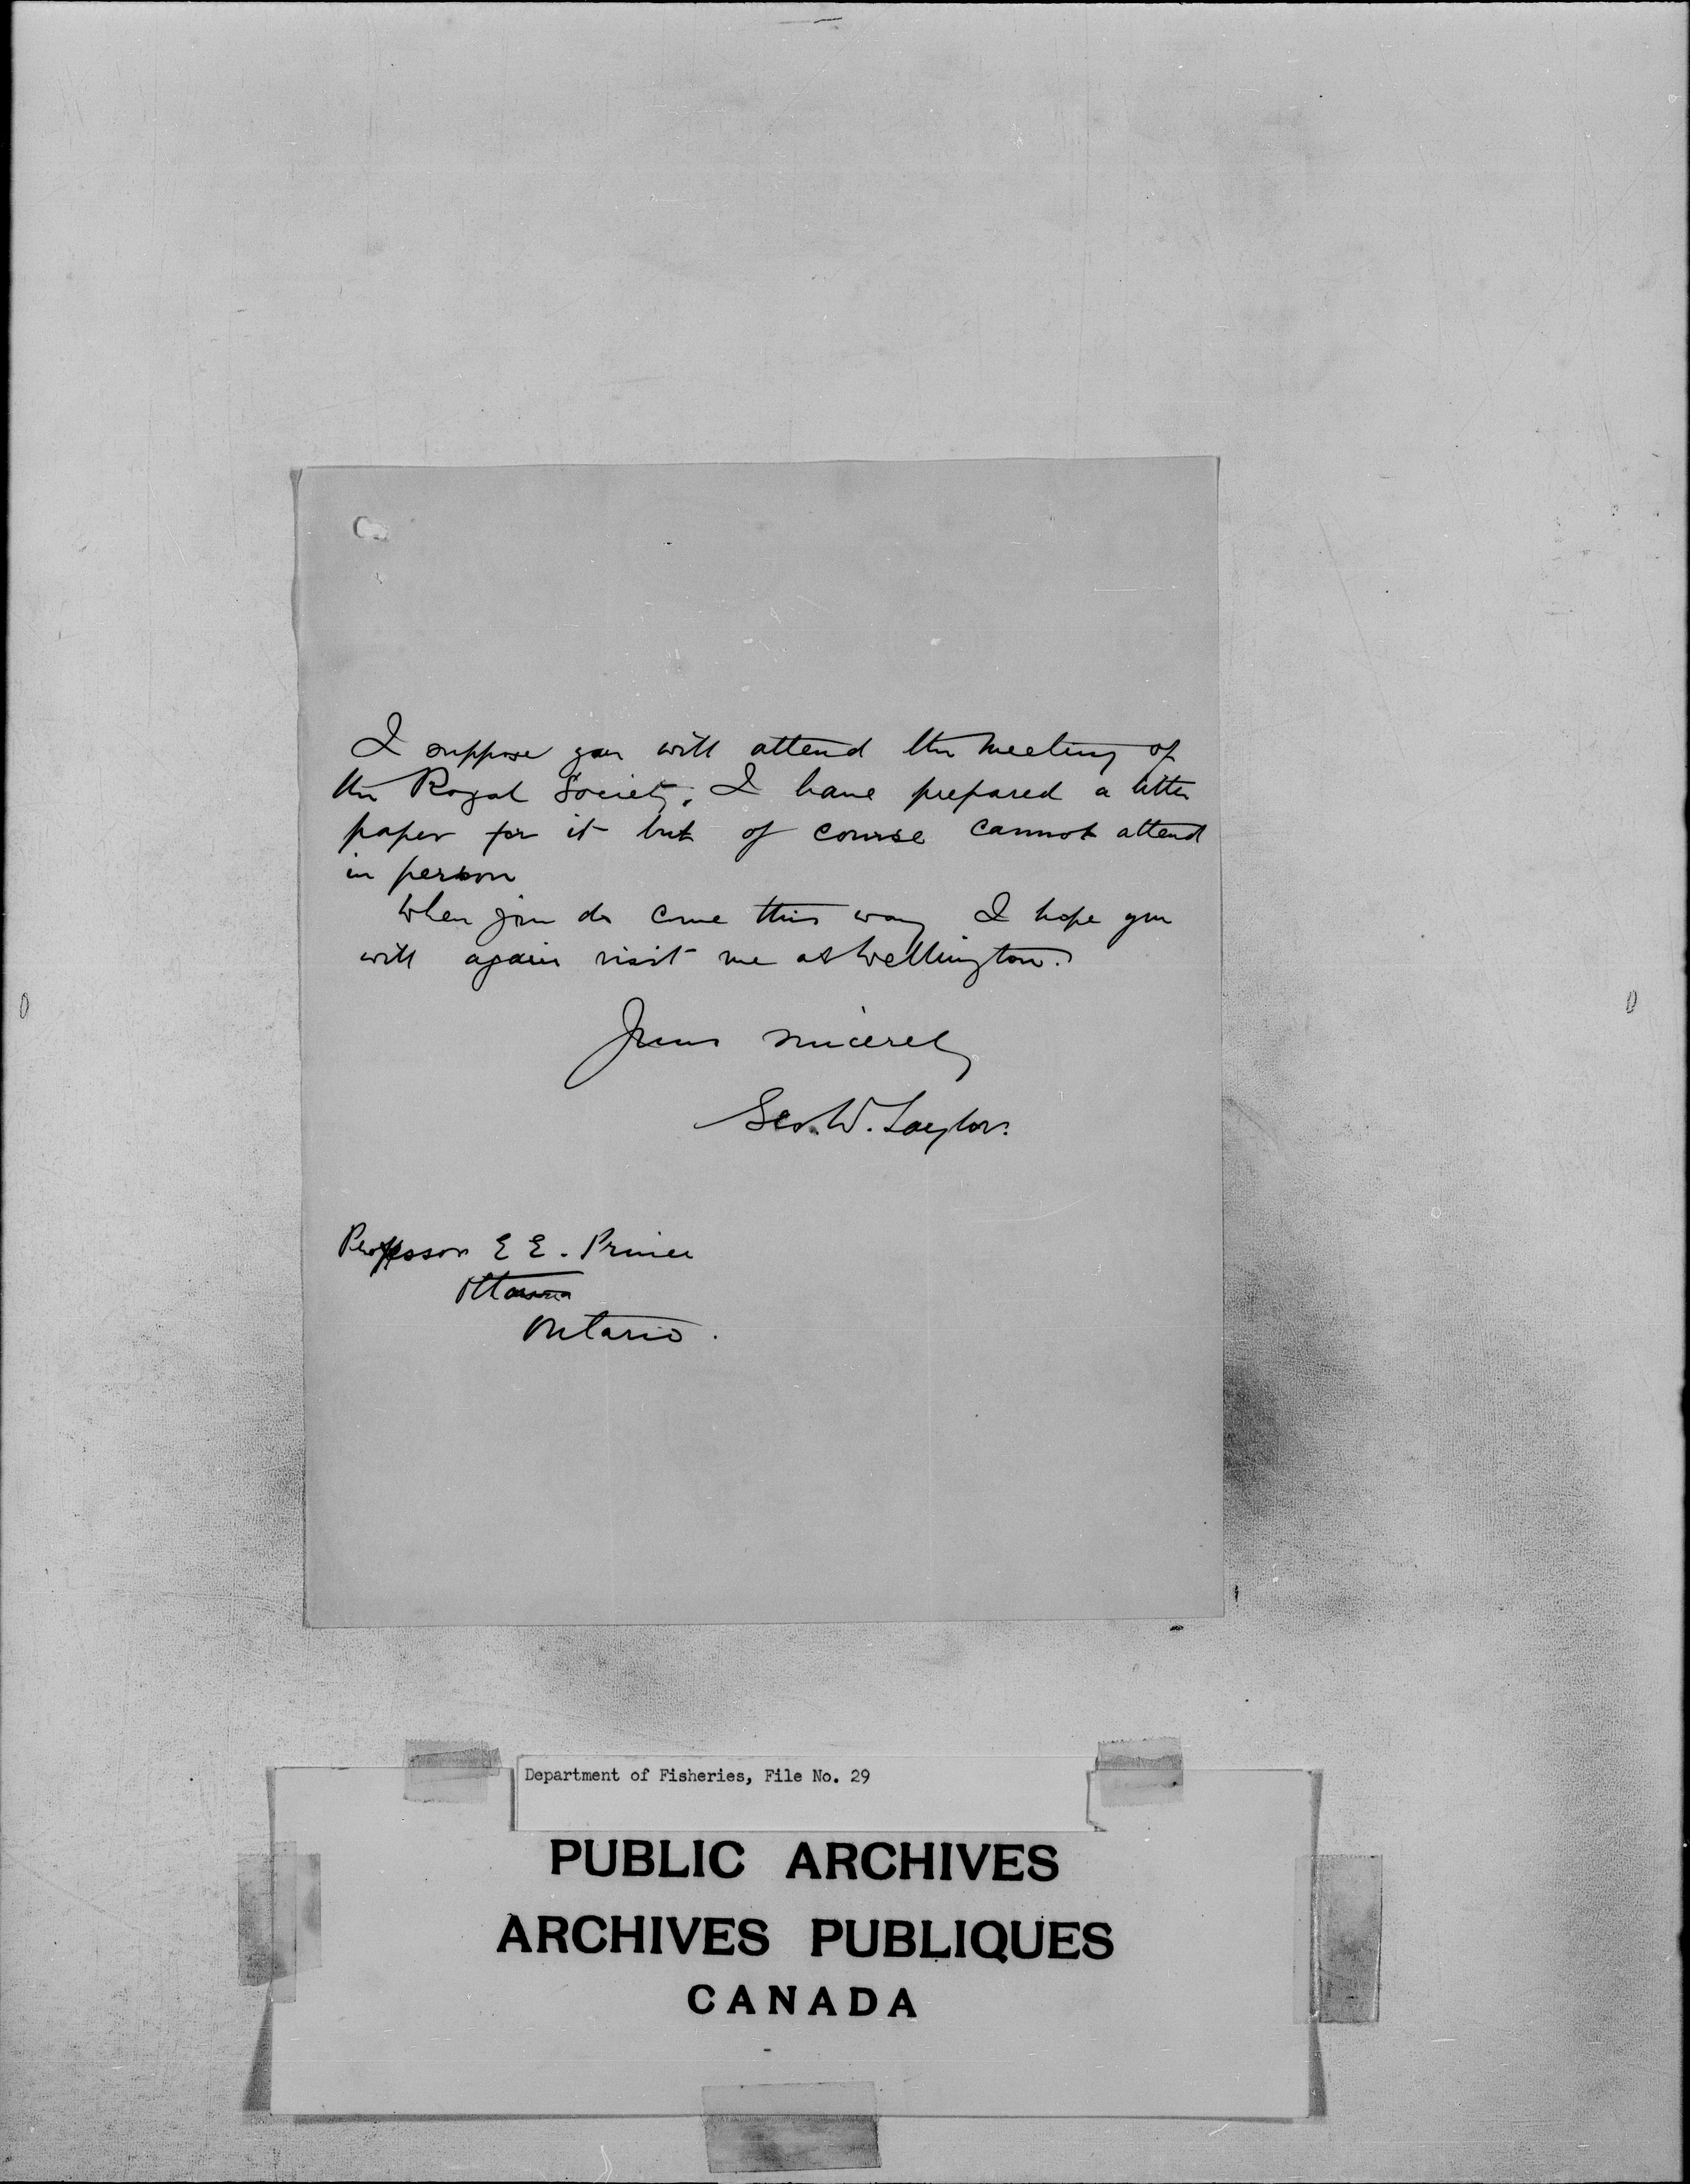 I suppose you will attend the meeting of
the Royal Society. I have prepared a little
paper for it but of course cannot attend
in person
When you do come this way I hope you
will again visit me at Wellington.
Yours sincerely
Geo. W. Taylor.
Professor E E. Prince
Ottawa
Ontario.
Department of Fisheries, File No. 29
PUBLIC ARCHIVES
ARCHIVES PUBLIQUES
CANADA